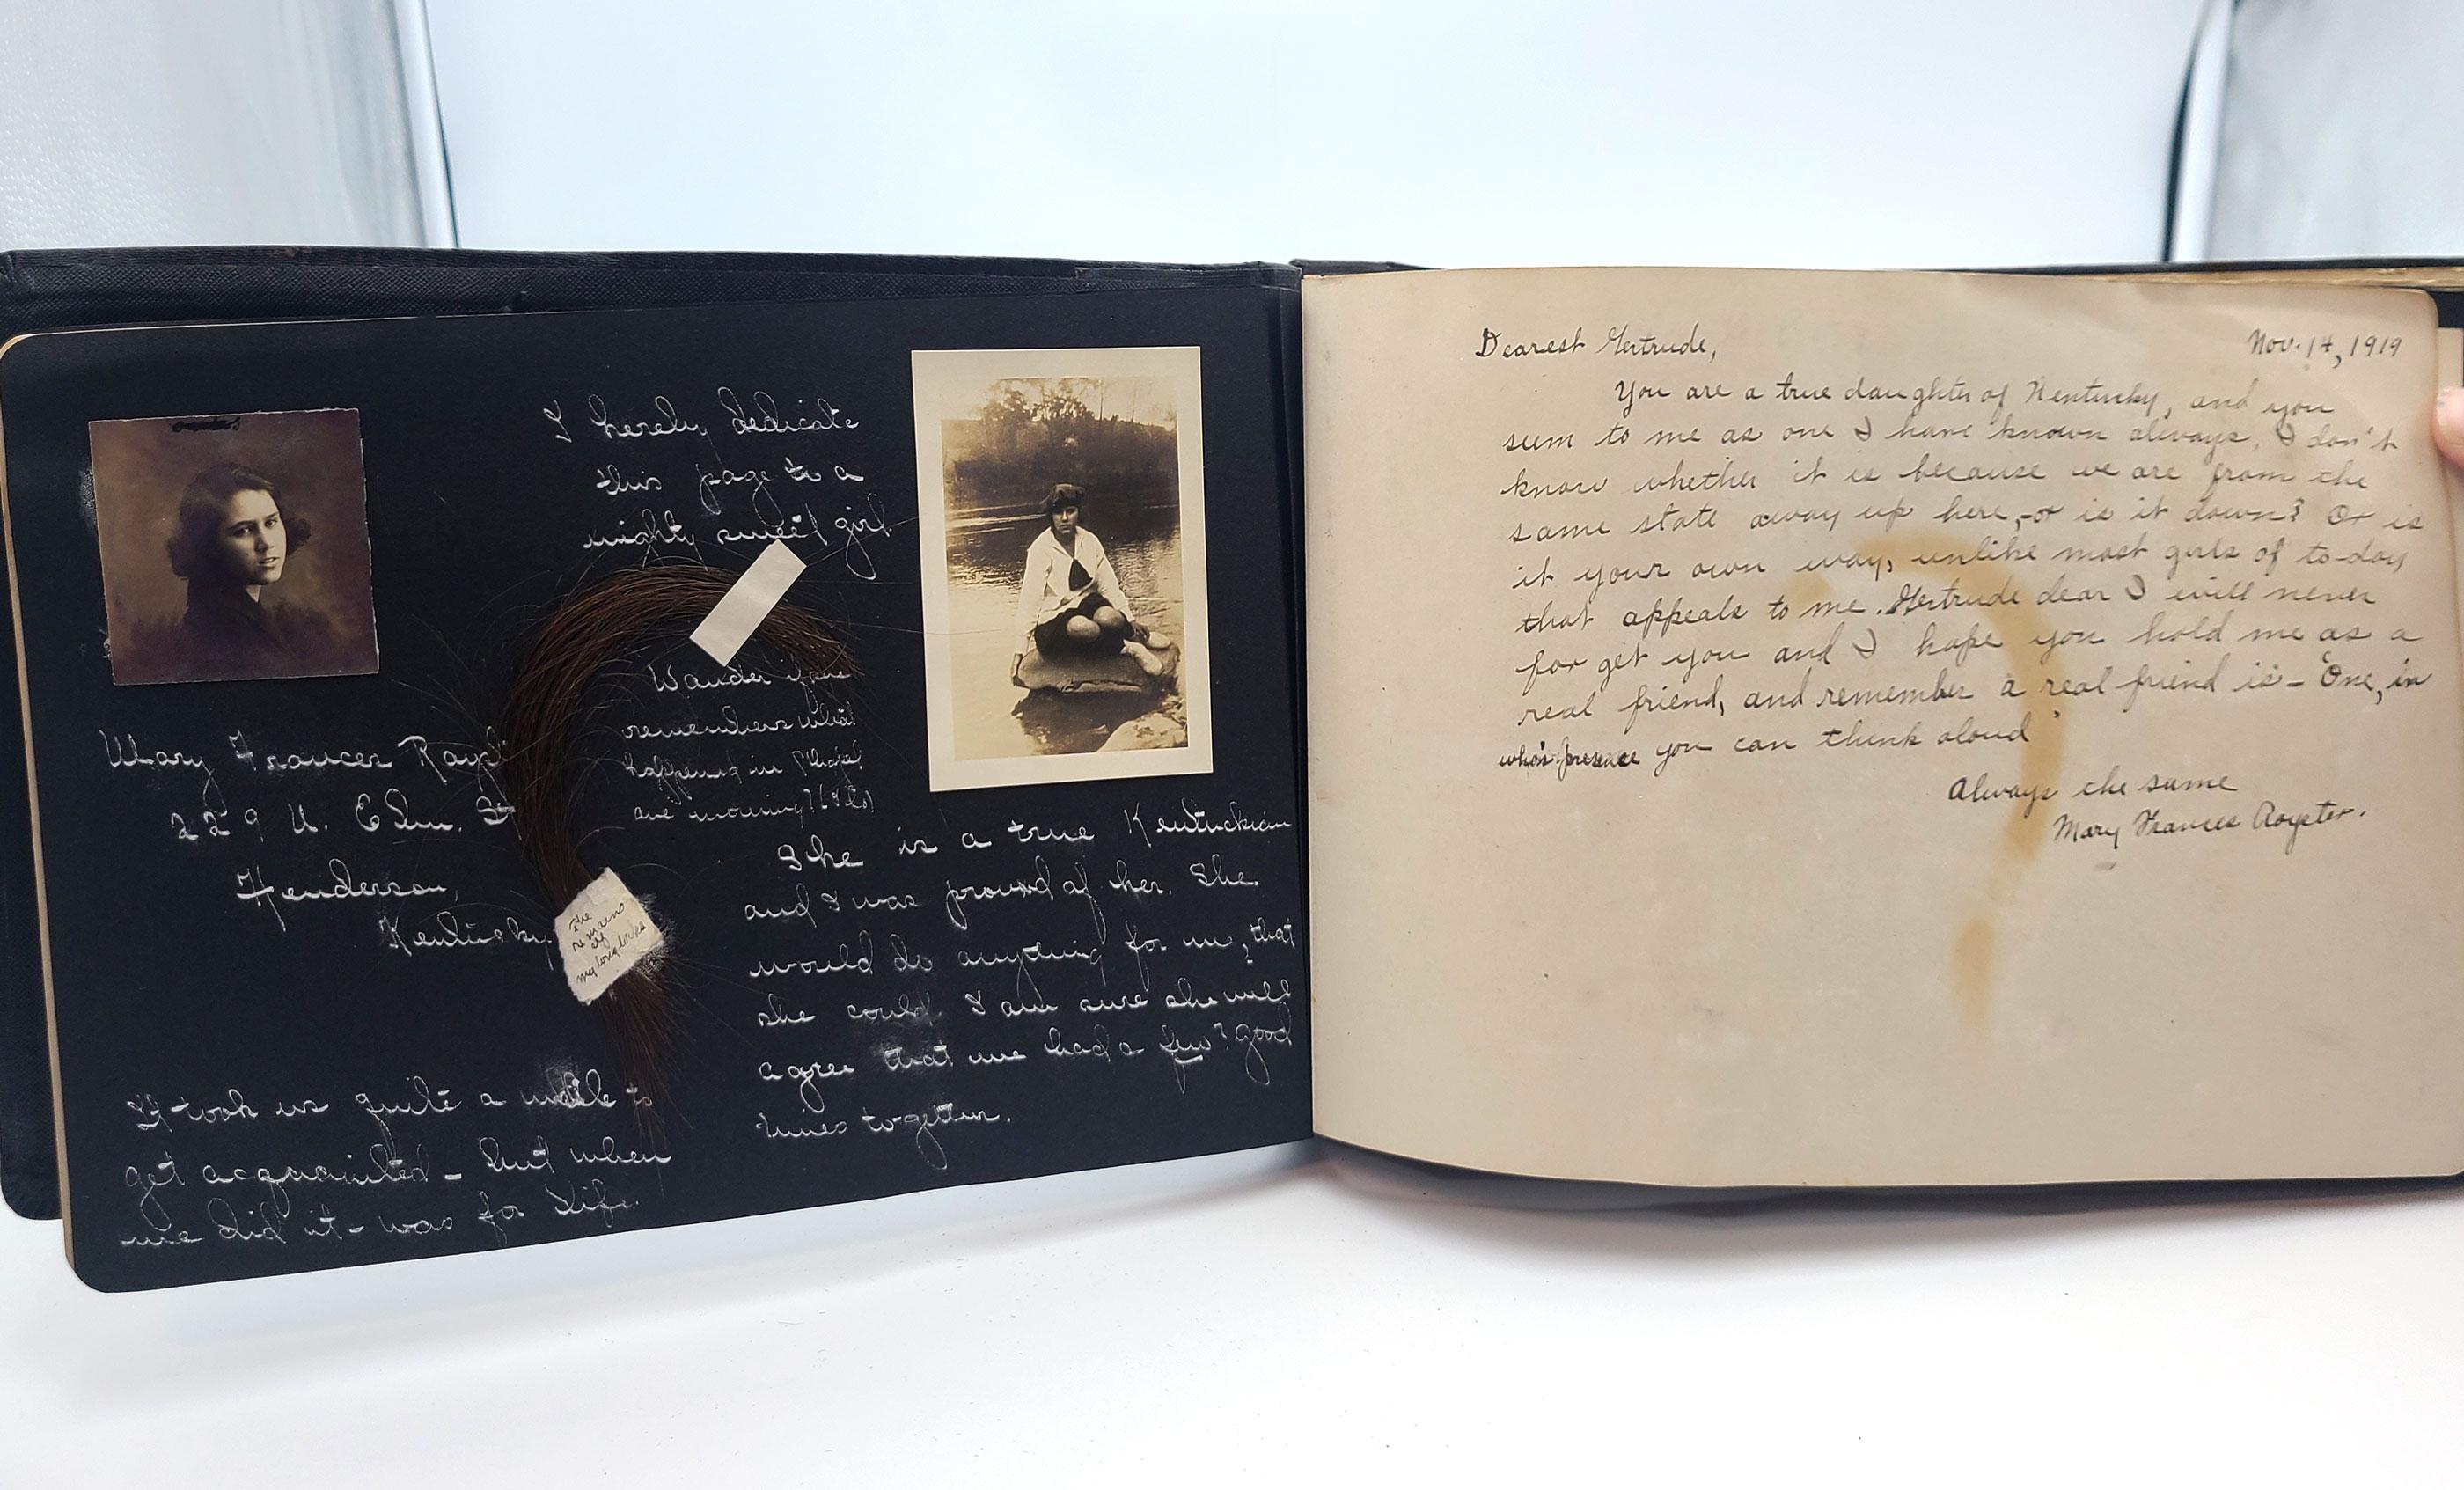 I hereby dedicate
this page to a
mighty sweet girl.
Mary Frances Royst
229 N. Elm. St
Henderson,
Kentucky.
Wonder if she
remembers what
happened in Chapel
one morning?
The
remains
of
my long locks
She is a true Kentuckian
and I was proud of her. She
would do anything for me, that
she could. I am sure she will
agree that we had a few? good
times together.
It took us quite a while to
get acquainted - but when
we did it - was for Life.
Dearest Gertrude,
Nov. 14, 1919
You are a true daughter of Kentucky, and you
seem to me as one I have known always, I don't
know whether it is because we are from the
same state away up here, or is it down? Or is
it your own way, unlike most girls of to-day
that appeals to me. Gertrude dear I will never
for get you and I hope you hold me as a
real friend, and remember a real friend is - "One, in
who's presence you can think aloud"
Always the same
Mary Frances Royster.